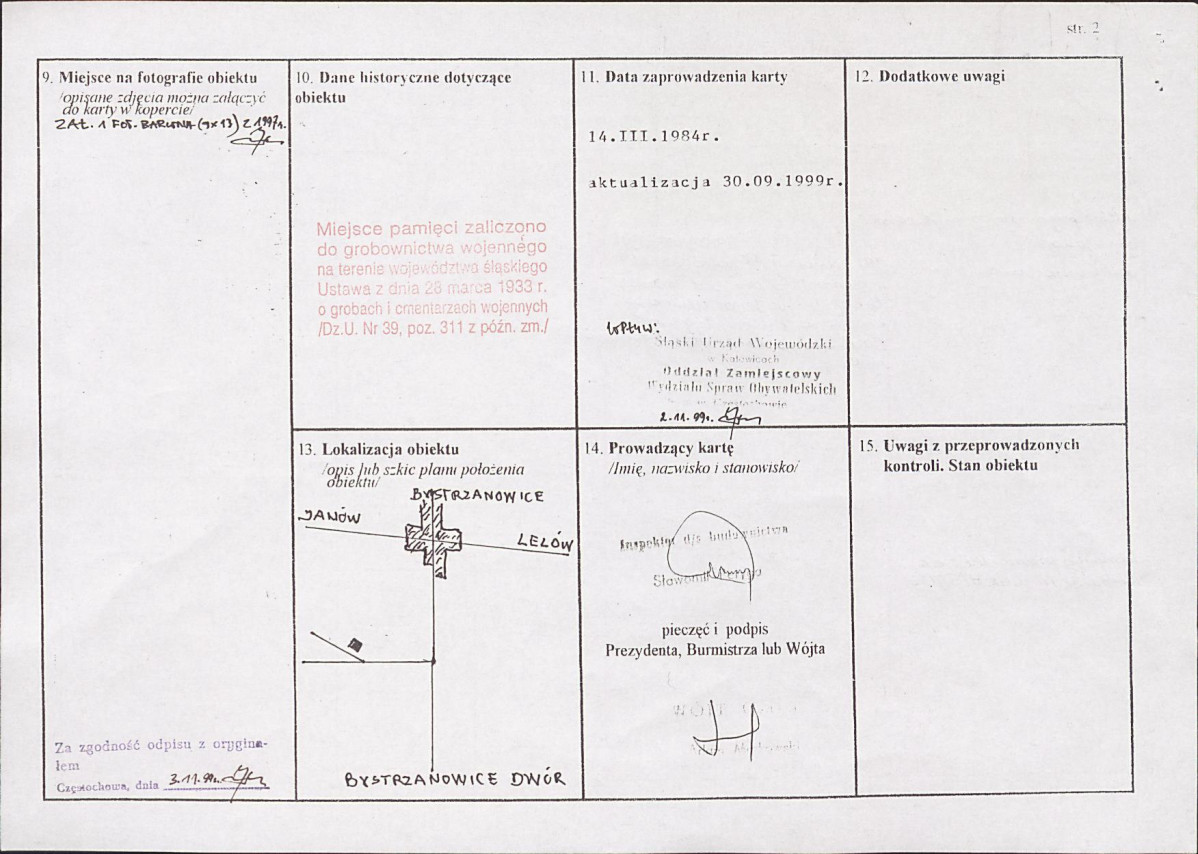 str. 2
9. Miejsce na fotografie obiektu
/opisane zdjęcia można załączyć
do karty w kopercie/
ZAŁ. 1 FOT. BARWNA (9x13) Z 1997r.
10. Dane historyczne dotyczące
obiektu
Miejsce pamięci zaliczono
do grobownictwa wojennego
na terenie województwa śląskiego
Ustawa z dnia 28 marca 1933 r.
o grobach i cmentarzach wojennych
/Dz.U. Nr 39, poz. 311 z późn. zm./
11. Data zaprowadzenia karty
14.III.1984r.
aktualizacja 30.09.1999r.
WPŁYW:
Śląski Urząd Wojewódzki
w Katowicach
Oddział Zamiejscowy
Wydziału Spraw Obywatelskich
w Częstochowie
2.11.99r.
12. Dodatkowe uwagi
13. Lokalizacja obiektu
/opis lub szkic planu położenia
obiektu/
BYSTRZANOWICE
JANÓW
LELÓW
BYSTRZANOWICE DWÓR
14. Prowadzący kartę
/Imię, nazwisko i stanowisko/
Inspektor d/s budownictwa
pieczęć i podpis
Prezydenta, Burmistrza lub Wójta
15. Uwagi z przeprowadzonych
kontroli. Stan obiektu
Za zgodność odpisu z orygina-
łem
Częstochowa, dnia 3.11.99r.